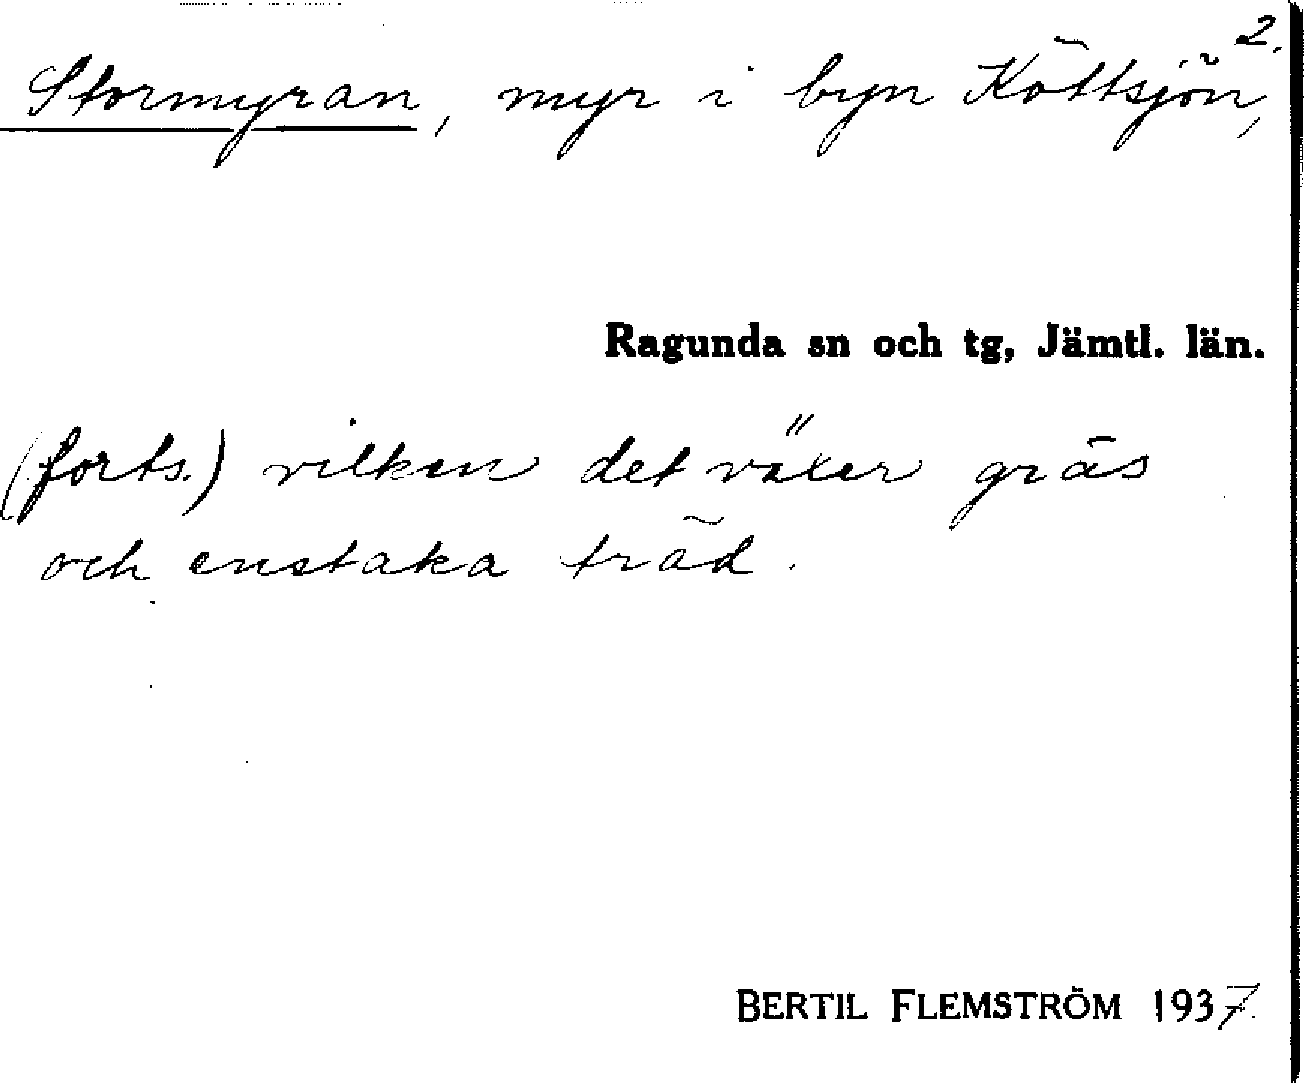 2.
Stormyran, myr i byn Köttsjön,
Ragunda sn och tg, Jämtl. län.
(forts.) vilken det växer gräs
och enstaka träd.
BERTIL FLEMSTRÖM 1937